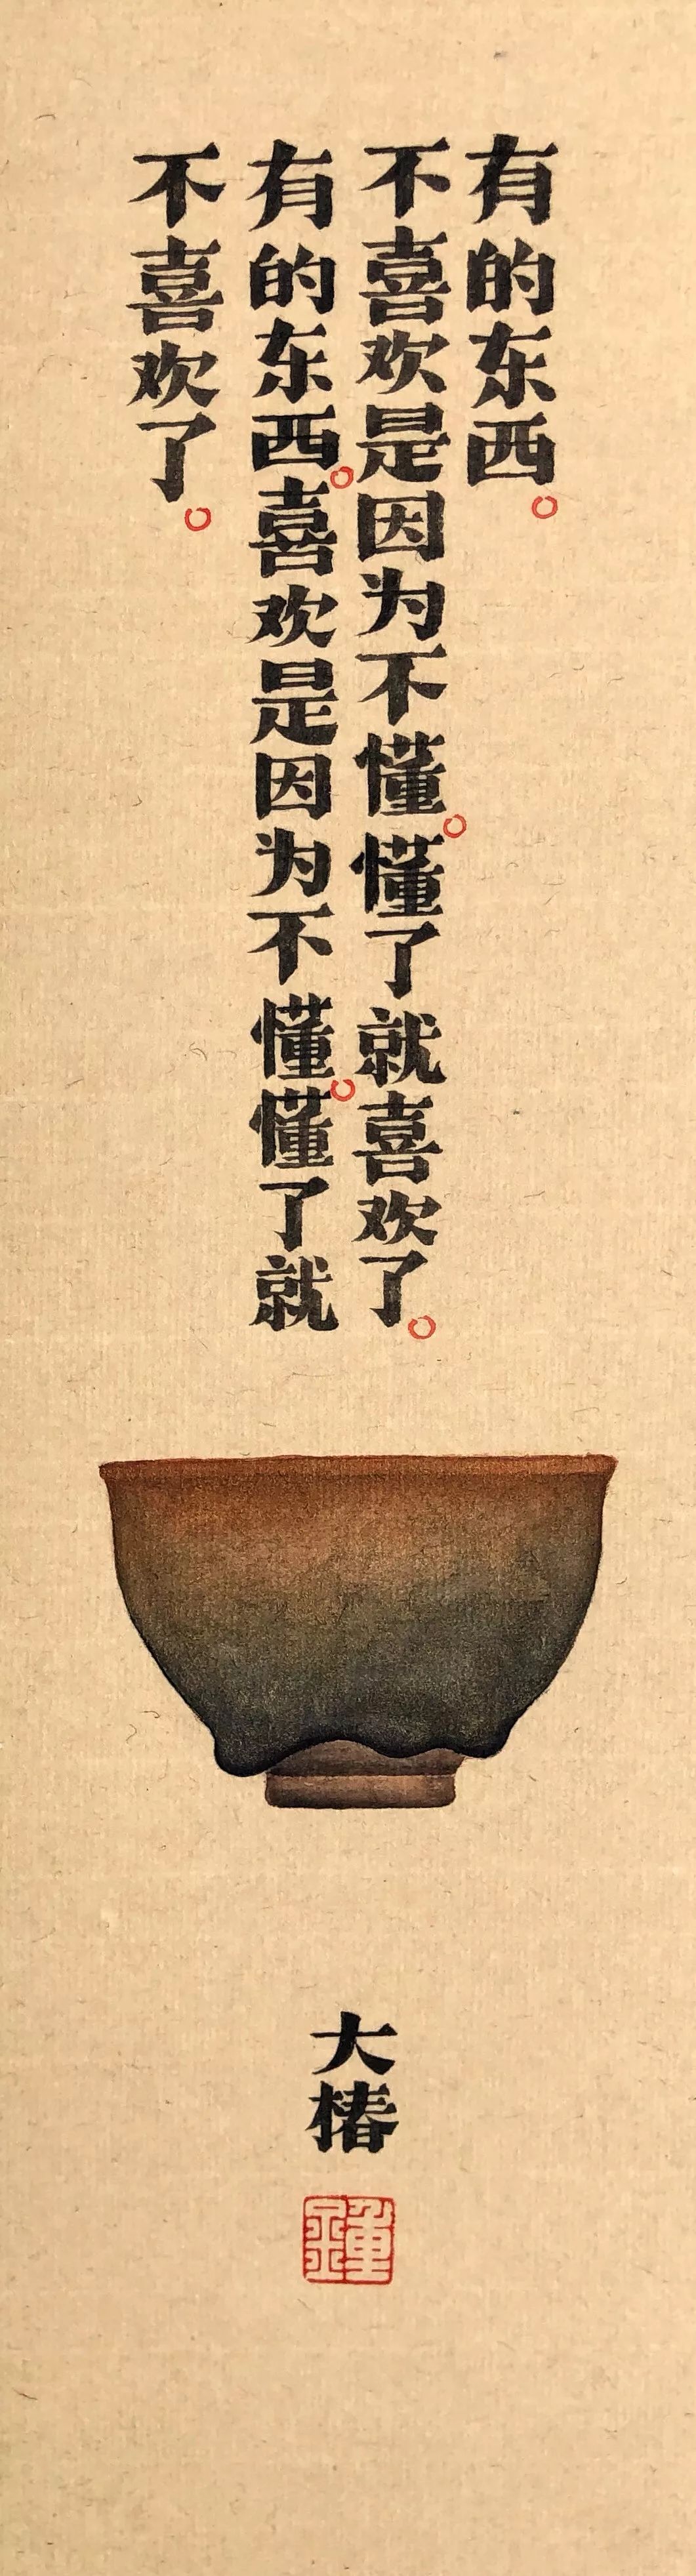 有的东西。
不喜欢是因为不懂。懂了就喜欢了。
有的东西。喜欢是因为不懂。懂了就
不喜欢了。
大椿
鍾